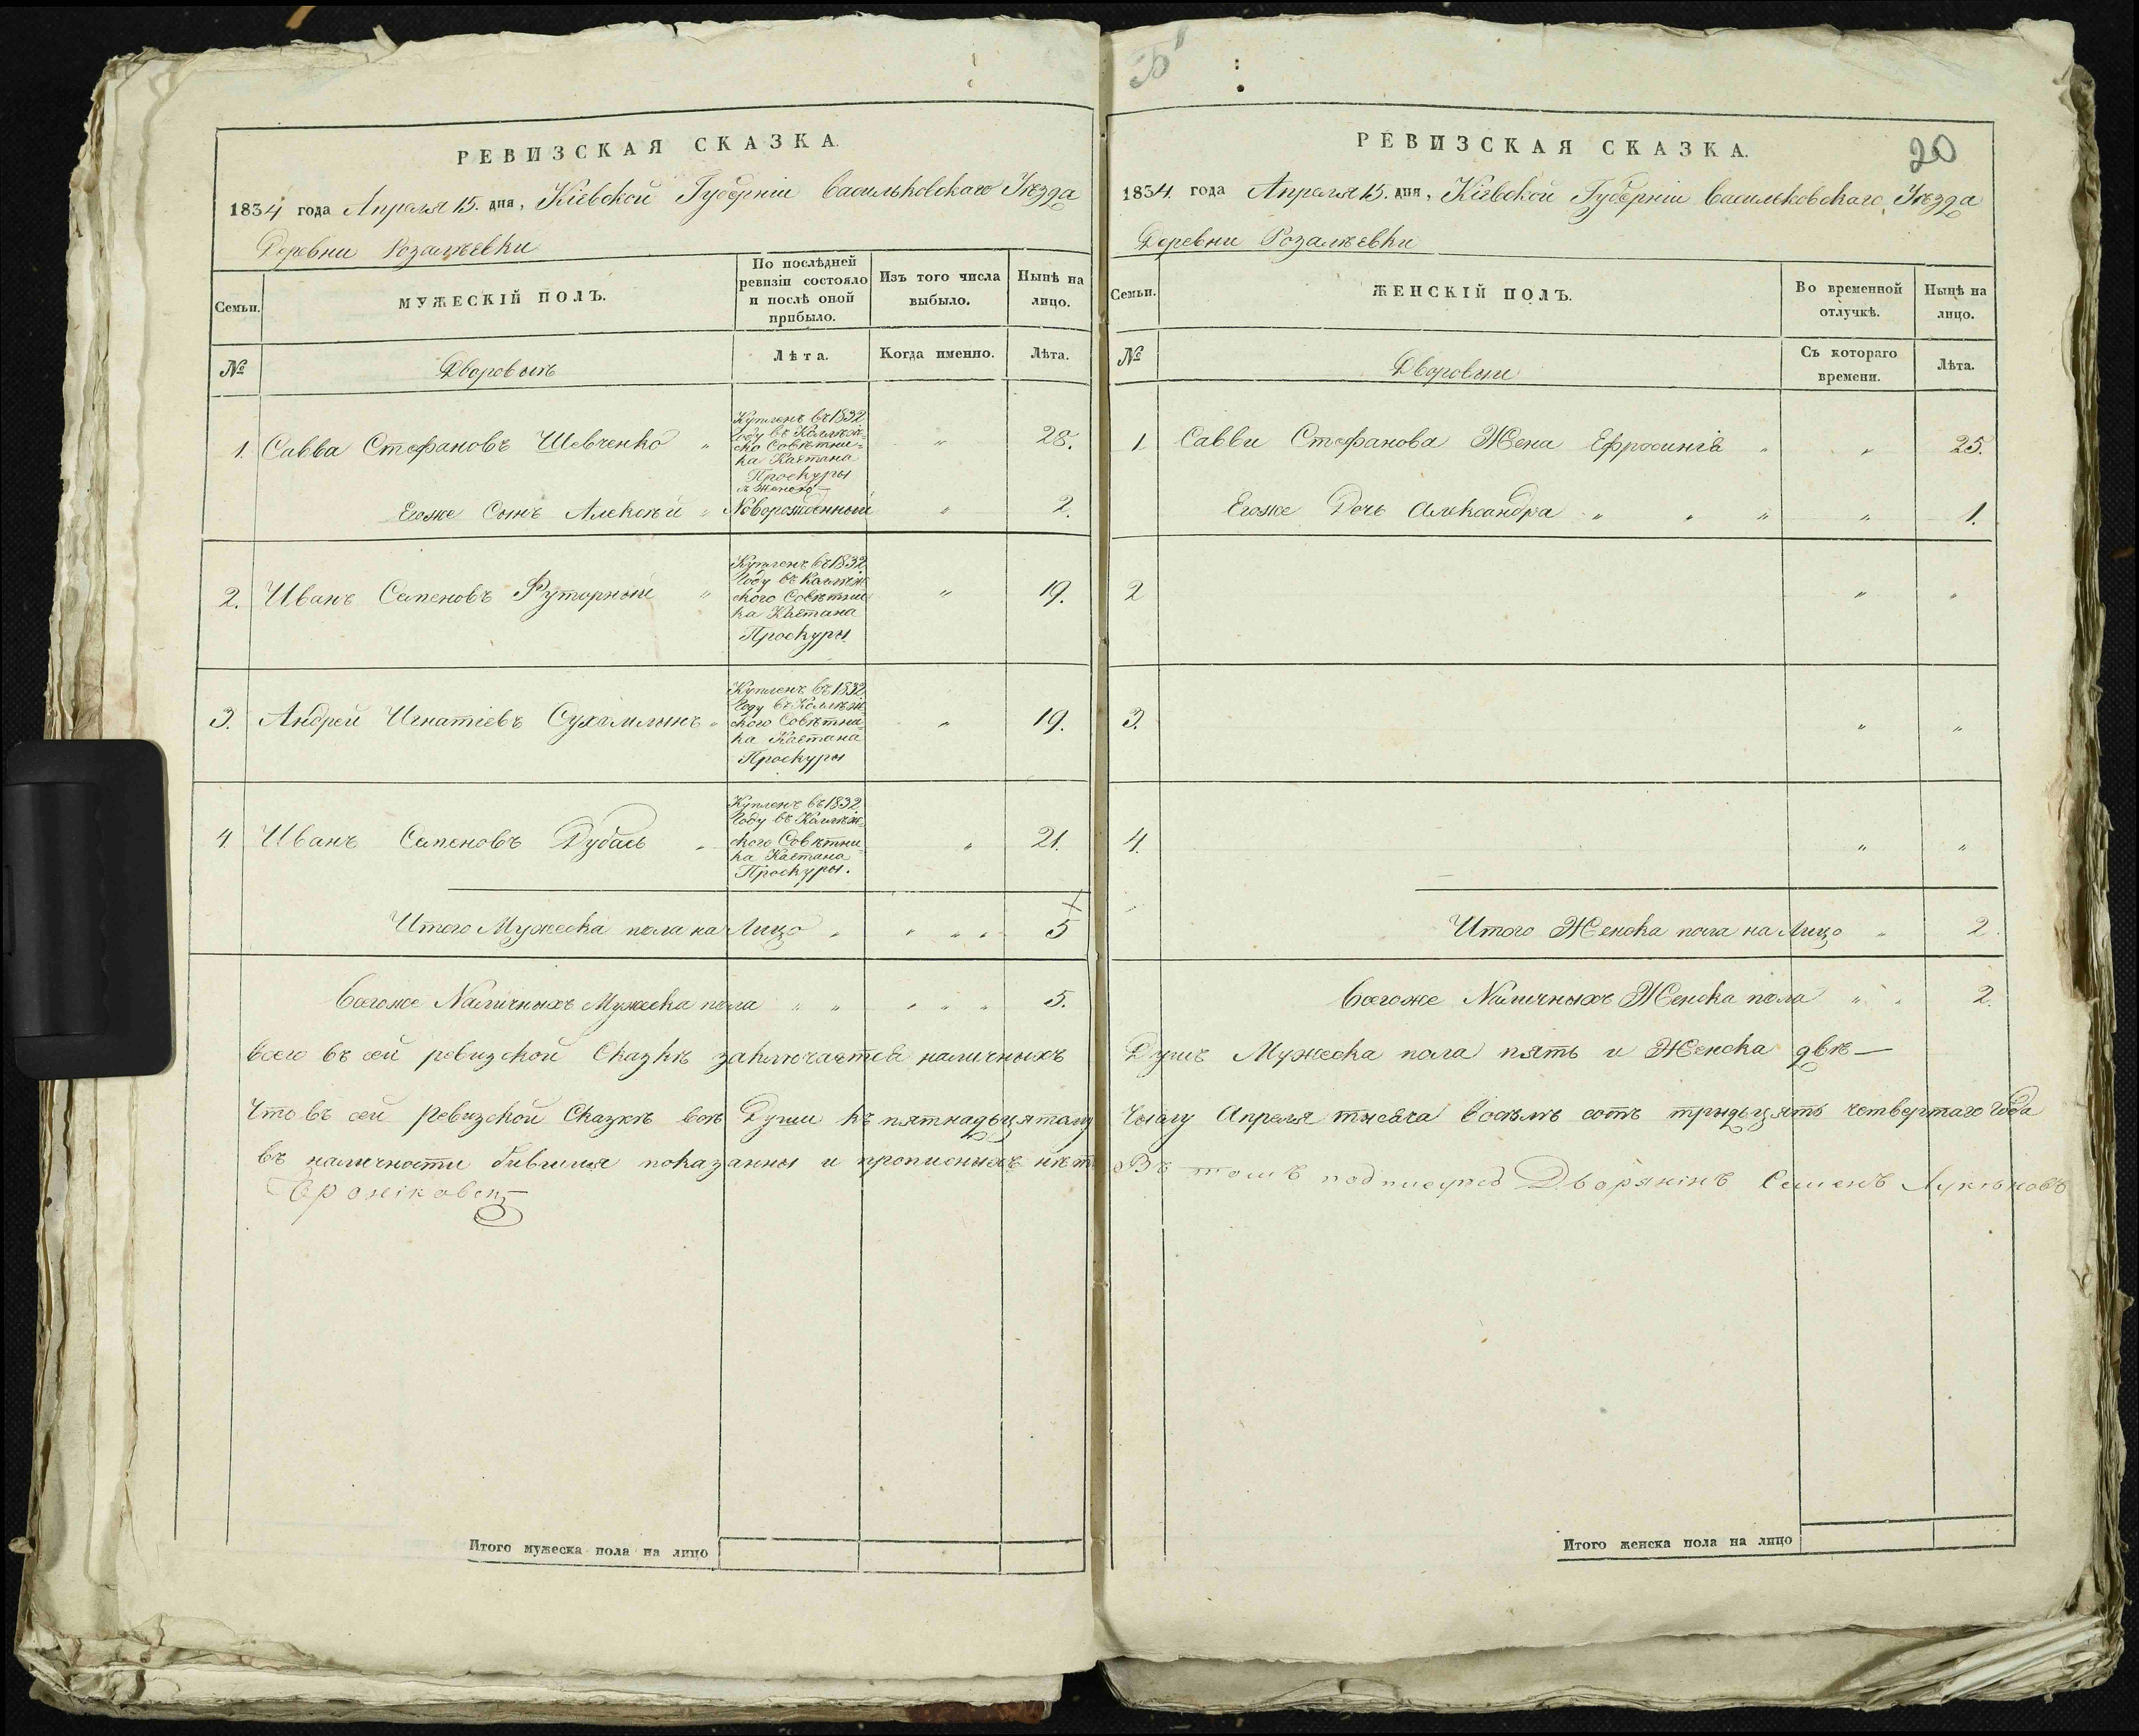 РЕВИЗСКАЯ СКАЗКА.
1834 года Апреля 15. дня, Кіевской Губерніи Васильковскаго Уѣзда
Деревни Розалѣевки
Семьи.
МУЖЕСКІЙ ПОЛЪ.
По послѣдней
ревизіи состояло
и послѣ оной
прибыло.
Изъ того числа
выбыло.
Нынѣ на
лицо.
№
Дворовыхъ
Лѣта.
Когда именно.
Лѣта.
1. Савва Стефановъ Шевченко "
Купленъ въ 1832
Году въ Коллѣж=
ско Совѣтни=
ка Каетана
Проскуры
" 28.
Егоже Сынъ Алексѣй " Новорожденный " 2.
2. Иванъ Семеновъ "
Купленъ въ 1832
Году въ Коллѣж
ского Совѣтни
ка Каетана
Проскуры
" 19.
3. Андрей Игнатіевъ Сухамлынъ "
Купленъ въ 1832
Году въ Коллѣж
ского Совѣтни=
ка Каетана
Проскуры
" 19.
4 Иванъ Семеновъ Дубась "
Купленъ въ 1832
Году въ Коллѣж=
ского Совѣтни=
ка Каетана
Проскуры.
" 21.
Итого Мужеска пола на Лицо " " " " 5
Всегоже Наличныхъ Мужеска пола " " " " " 5.
Всего въ сей ревизской Сказкѣ заключается наличныхъ
Что въ сей Ревизской Сказкѣ всѣ Души къ пятнадьцятому
въ наличности бившия показанны и прописныхъ нѣтъ
Итого мужеска пола на лицо
20
РЕВИЗСКАЯ СКАЗКА.
1834. года Апреля 15. дня, Кіевской Губерніи Васильковскаго Уѣзда
Деревни Розалѣевки
Семьи.
ЖЕНСКІЙ ПОЛЪ.
Во временной
отлучкѣ.
Нынѣ на
лицо.
№
Дворовыи
Съ котораго
времени.
Лѣта.
1 Савви Стефанова Жена Ефросиніа " " 25.
Егоже Дочь Александра " " " " 1.
2 " "
3. " "
4. " "
Итого Женска пола на Лицо " 2.
Всегоже Наличныхъ Женска пола " " 2.
Душъ Мужеска пола пять и Женска двѣ —
Числу Апреля тысяча восѣмъ сотъ трыдьцять четвертаго Года
Въ томъ Дворянінъ Семенъ
Итого женска пола на лицо